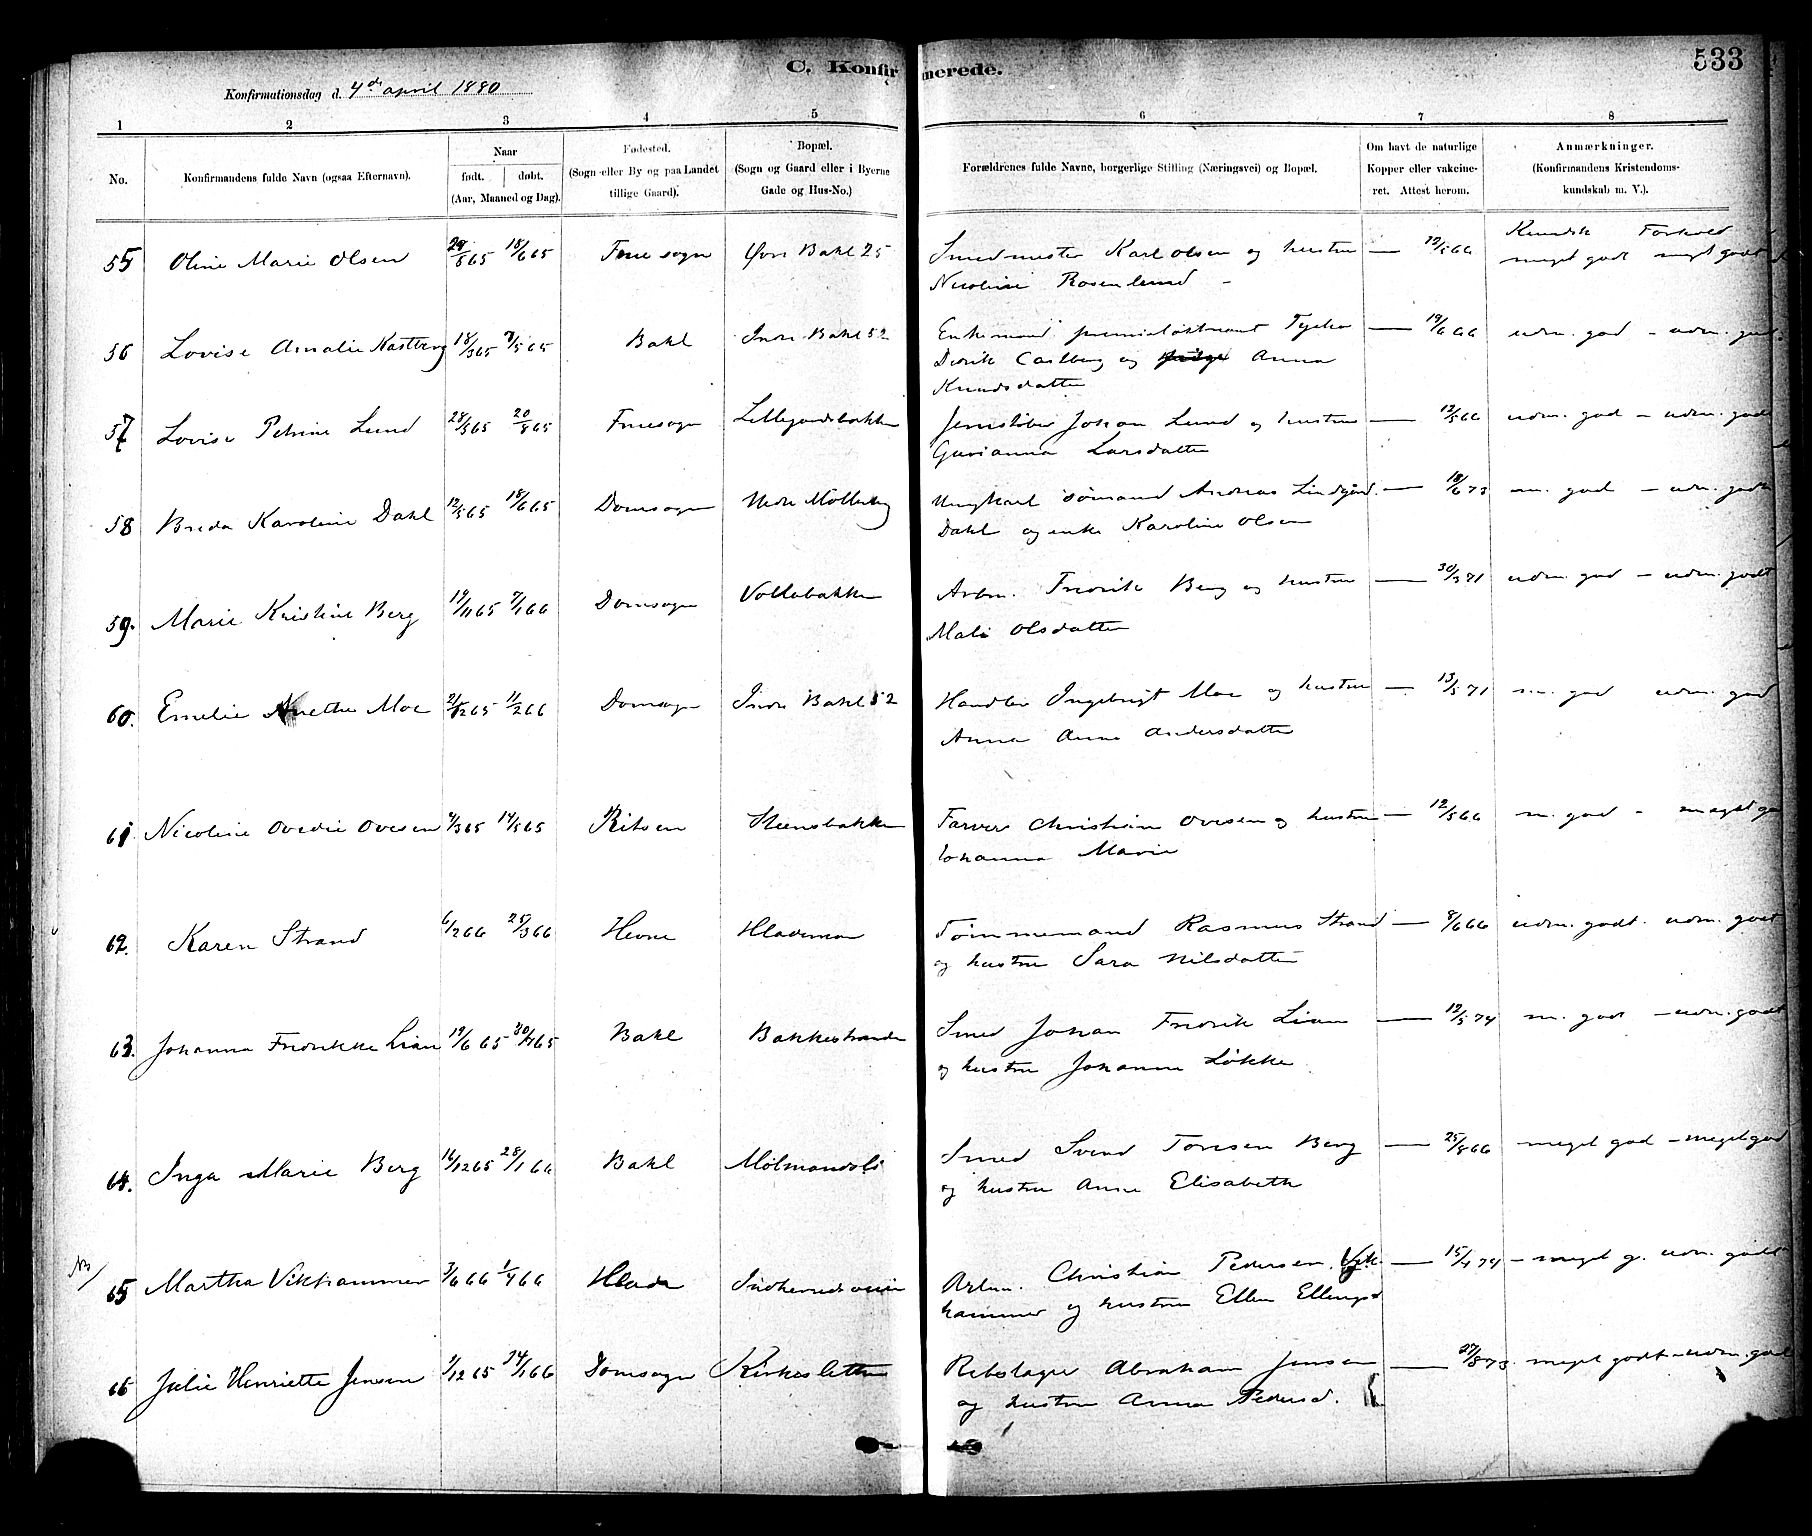 C. Konfirmerede.
533
Konfirmationsdag d. 4de april 1880
1 2 3 4 5 6 7 8
No.
Konfirmandens fulde Navn (ogsaa Efternavn).
Naar
født. døbt.
(Aar, Maaned og Dag).
Fødested.
(Sogn eller By og paa Landet
tillige Gaard).
Bopæl.
(Sogn og Gaard eller i Byerne
Gade og Hus-No.)
Forældrenes fulde Navne, borgerlige Stilling (Næringsvei) og Bopæl.
Om havt de naturlige
Kopper eller vakcine-
ret. Attest herom.
Anmærkninger.
(Konfirmandens Kristendoms-
kundskab m. V.).
Kundsk Forhold
55 Oline Marie Olsen 29/5 65 18/6 65 Frue sogn Øvre Bakl 25 Smedmester Karl Olsen og hustru — 12/5 66 meget godt meget godt
Nicoline Rosenlund
56 Lovise Amalie Kastberg 18/3 65 7/5 65 Bakl Indre Bakl 52 Enkemand premierløitnant — 19/6 66 udm. god – udm. god
Didrik Carlberg og Anna
Knudsdatter
57 Lovise Petrine Lund 28/5 65 20/8 65 Fruesogn Lillegaardsbakken Jernstøber Johan Lund og hustru — 12/5 66 udm. god – udm. godt
Gurianna Larsdatter
58 Breda Karoline Dahl 12/5 65 18/6 65 Domsogn Nedre Møllenbg Ungkarl sømand Andreas Lindgård — 18/6 73 m. god – udm. godt
Dahl og enke Karoline Olsen
59. Marie Kristine Berg 19/11 65 7/1 66 Domsogn Vollabakken Arbm. Fredrik Berg og hustru — 30/3 71 udm. god – udm. godt
Mali Olsdatter
60. Emelie Anethe Moe 21/12 65 11/2 66 Domsogn Indre Bakl 52 Handler Ingebrigt Moe og hustru — 13/5 71 m. god udm. god
Anna Anne Andersdatter
61. Nicoline Ovedie Ovesen 4/3 65 14/5 65 Ritsen Steensbakken Farver Christian Ovesen og hustru — 12/5 66 m. god – meget go
Johanna Marie
62. Karen Strand 6/2 66 25/3 66 Hevne Hlademoen Tømmermand Rasmus Strand — 8/6 66 udm. godt. udm. godt
og hustru Sara Nilsdatter
63. Johanna Fredrikke Lian 19/6 65 30/7 65 Bakl Bakkestranden Smed Johan Fredrik Lian — 12/5 74 m. godt – udm. godt
og hustru Johanne Løkke
64. Inga Marie Berg 16/12 65 28/1 66 Bakl Mølmandsli Smed Svend Toresen Berg — 25/8 66 meget god – meget god
og hustru Anne Elisabeth
65 Martha Vikhammer 3/6 66 1/4 66 Hlade Indherredsveien Arbm. Christian Pedersen Vik- — 15/4 74 – meget g. udm. godt
hammer og hustru Ellen Ellingsd
66 Julie Henriette Jensen 9/12 65 14/1 66 Domsogn Kirkesletten Rebslager Abraham Jensen — 27/8 73. meget godt – udm. god
og hustru Anna Pedersd.